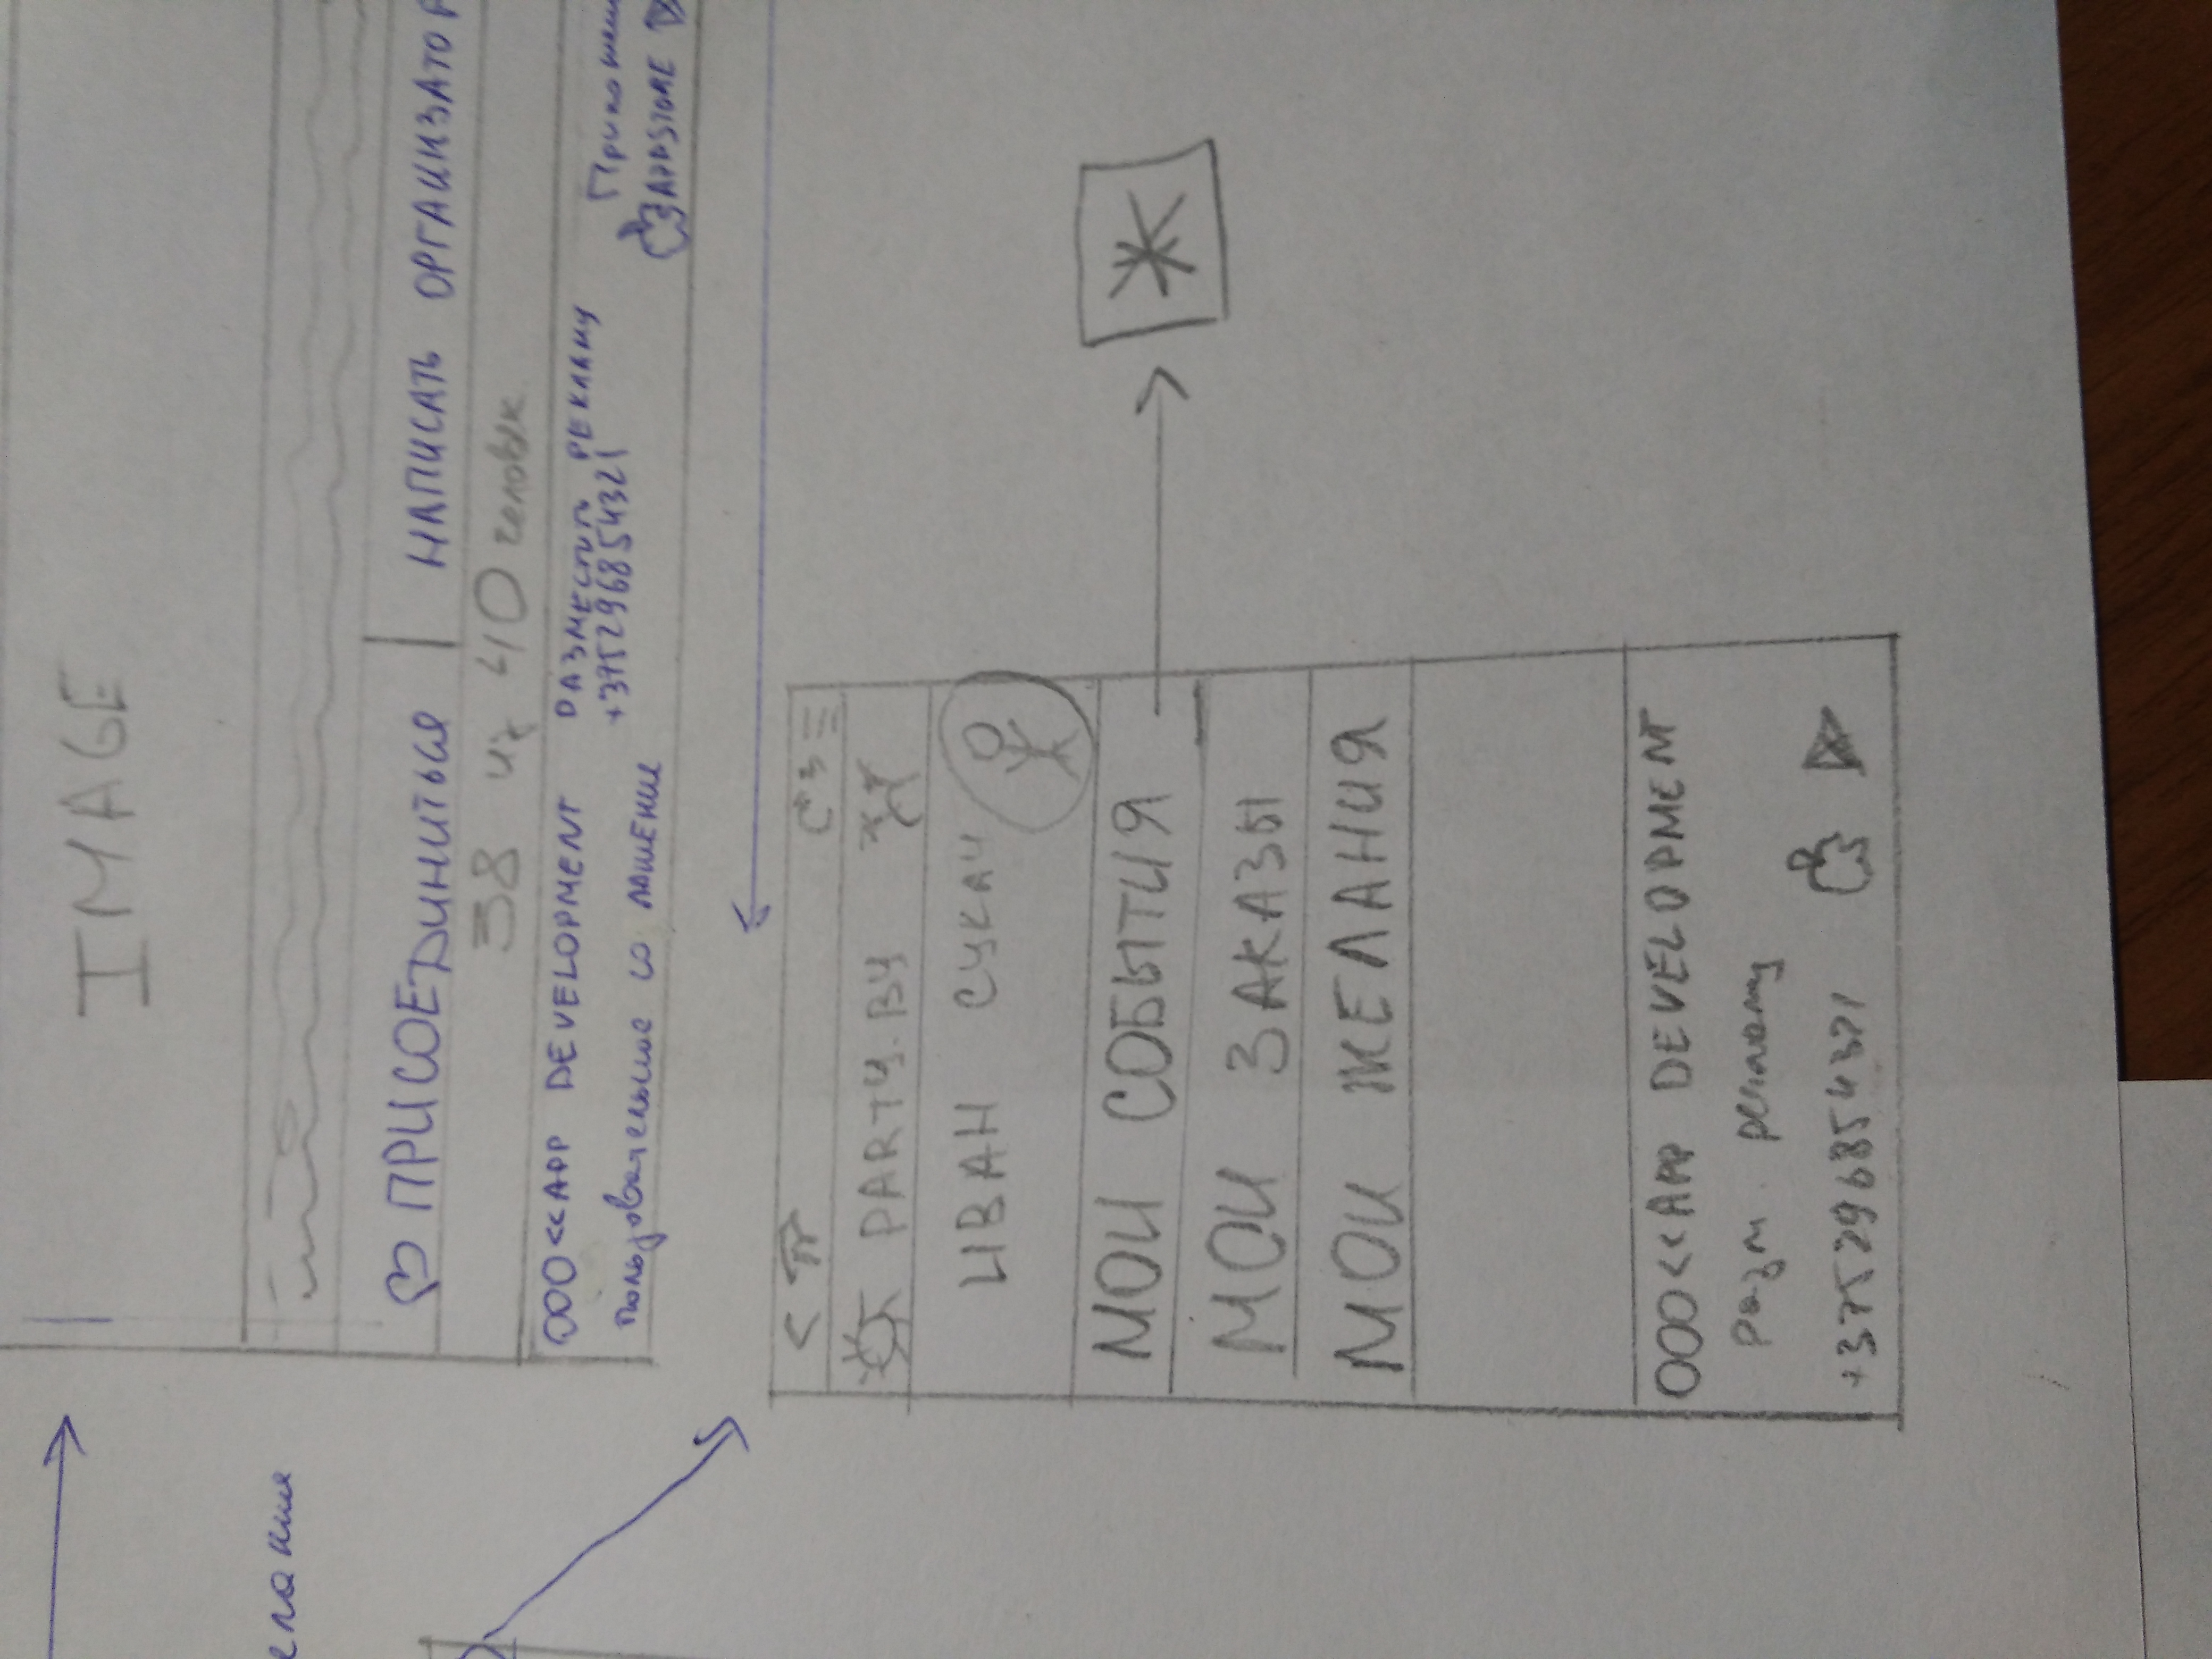 IMAGE
ПРИСОЕДИНИТЬСЯ НАПИСАТЬ ОРГАНИЗАТОР
38 из 40 человек
ООО<<APP DEVELOPMENT РАЗМЕСТИТЬ РЕКЛАМУ
Пользовательское со лашение +375296854321
APPSTORE
PARTY.BY
ИВАН СУКАЧ
МОИ СОБЫТИЯ
МОИ ЗАКАЗЫ
МОИ ЖЕЛАНИЯ
ООО<<APP DEVELOPMENT
Разм. рекламу
+375296854321